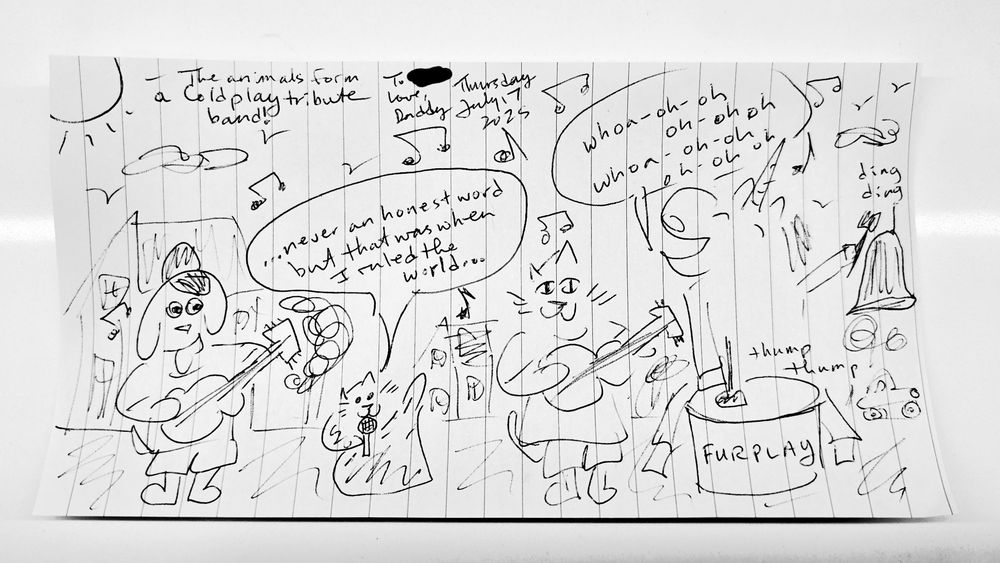 - The animals form
a Coldplay tribute
band!
To
Love,
Daddy
Thursday
July 17
2025
whoa-oh-oh
oh-oh oh
whoa-oh-oh
oh-oh oh
ding
ding
...never an honest word
but that was when
I ruled the
world...
thump
thump
FURPLAY